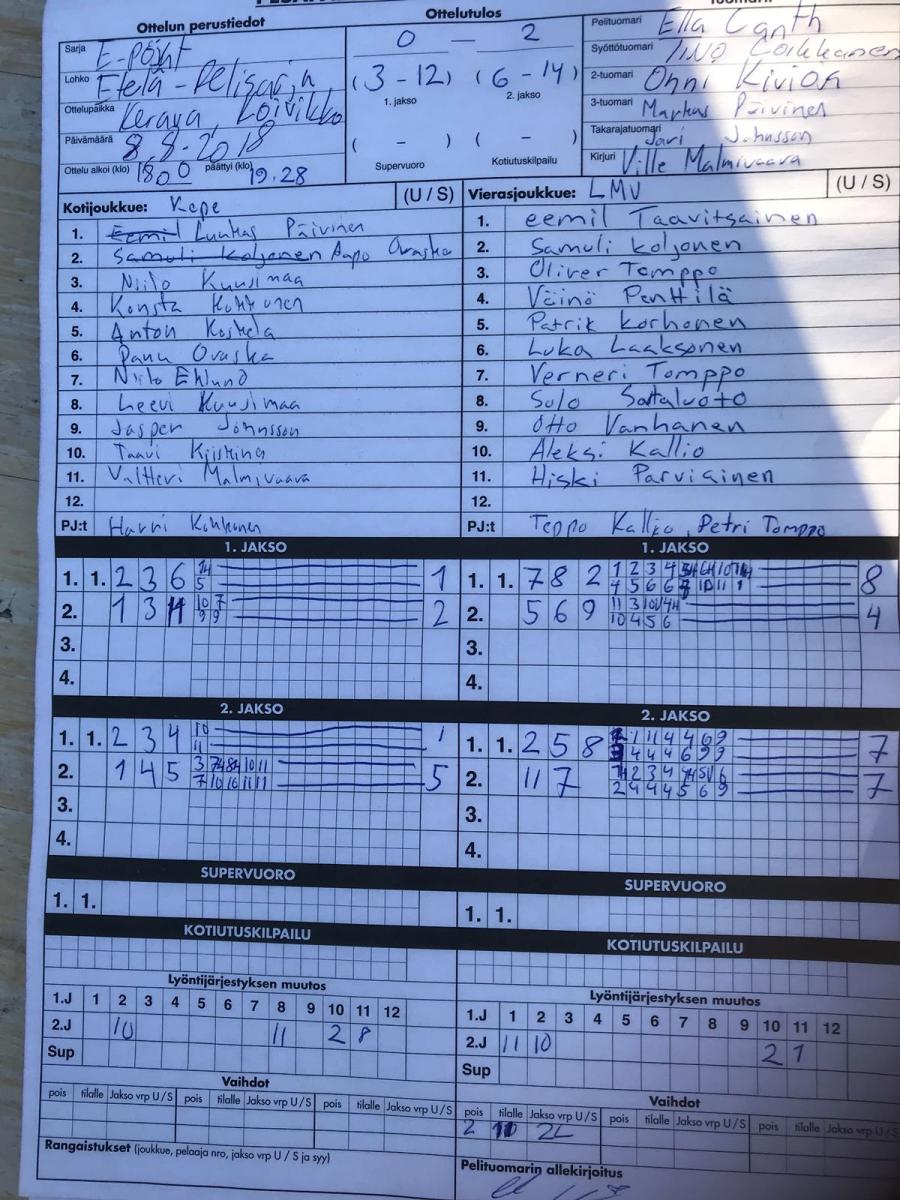 Ottelun perustiedot
Ottelutulos
Sarja E-pojat
Lohko Etelä-Pelisarja
Ottelupaikka Kerava, Koivikko
Päivämäärä 8.8-2018
Ottelu alkoi (klo) 18.00 päättyi (klo) 19.28
0 — 2
(3-12) (6-14)
1. jakso 2. jakso
( - ) ( - )
Supervuoro Kotiutuskilpailu
Pelituomari Ella Canth
Syöttötuomari
2-tuomari Onni
3-tuomari Markus Päivinen
Takarajatuomari Jari Johnsson
Kirjuri Ville Malmivaara
Kotijoukkue: Kepe (U / S)
1. Eemil Luukas Päivinen
2. Samuli Koljonen Aapo Ovaska
3. Niilo Kuusimaa
4. Konsta Kokkonen
5. Anton Koskela
6. Panu Ovaska
7. Niilo Eklund
8. Leevi Kuusimaa
9. Jasper Johnsson
10. Taavi
11. Valtteri Malmivaara
12.
PJ:t Harri Kokkonen
Vierasjoukkue: LMV (U / S)
1. eemil Taavitsainen
2. Samuli koljonen
3. Oliver Tomppo
4. Väinö Penttilä
5. Patrik korhonen
6. Luka Laaksonen
7. Verneri Tomppo
8. Sulo Sataluoto
9. Otto Vanhanen
10. Aleksi Kallio
11. Hiski Parviainen
12.
PJ:t Teppo Kallio, Petri Tomppo
1. JAKSO
1. 1. 2 3 6 14 1
5
2. 1 3 11 10 7 2
9 9
3.
4.
1. JAKSO
1. 1. 7 8 2 1 2 3 4 8
4 5 6 6 7 10 11 1
2. 5 6 9 4
10 4 5 6
3.
4.
2. JAKSO
1. 1. 2 3 4 10 1
11
2. 1 4 5 5
7 10 10 11 11
3.
4.
2. JAKSO
1. 1. 2 5 8 1 11 4 4 6 9 7
4 4 4 6 9 9
2. 11 7 7
2 4 4 4 5 6 9
3.
4.
SUPERVUORO
1. 1.
SUPERVUORO
1. 1.
KOTIUTUSKILPAILU
KOTIUTUSKILPAILU
Lyöntijärjestyksen muutos
1.J 1 2 3 4 5 6 7 8 9 10 11 12
2.J 10 11 2 8
Sup
Lyöntijärjestyksen muutos
1.J 1 2 3 4 5 6 7 8 9 10 11 12
2.J 11 10 2 1
Sup
Vaihdot
pois tilalle Jakso vrp U / S pois tilalle Jakso vrp U / S pois tilalle Jakso vrp U / S
Vaihdot
pois tilalle Jakso vrp U / S pois tilalle Jakso vrp U / S pois tilalle Jakso vrp U / S
2 10 2L
Rangaistukset (joukkue, pelaaja nro, jakso vrp U / S ja syy)
Pelituomarin allekirjoitus